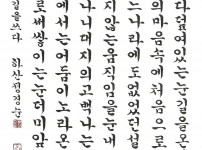 다덮여있는눈길을온
의마음속에처음으로
나라에도없었던설
지않는움직임을
나니대지의고백나는
에서는어둠이노라온
로써쌓이는눈더미앞
길을쓰다